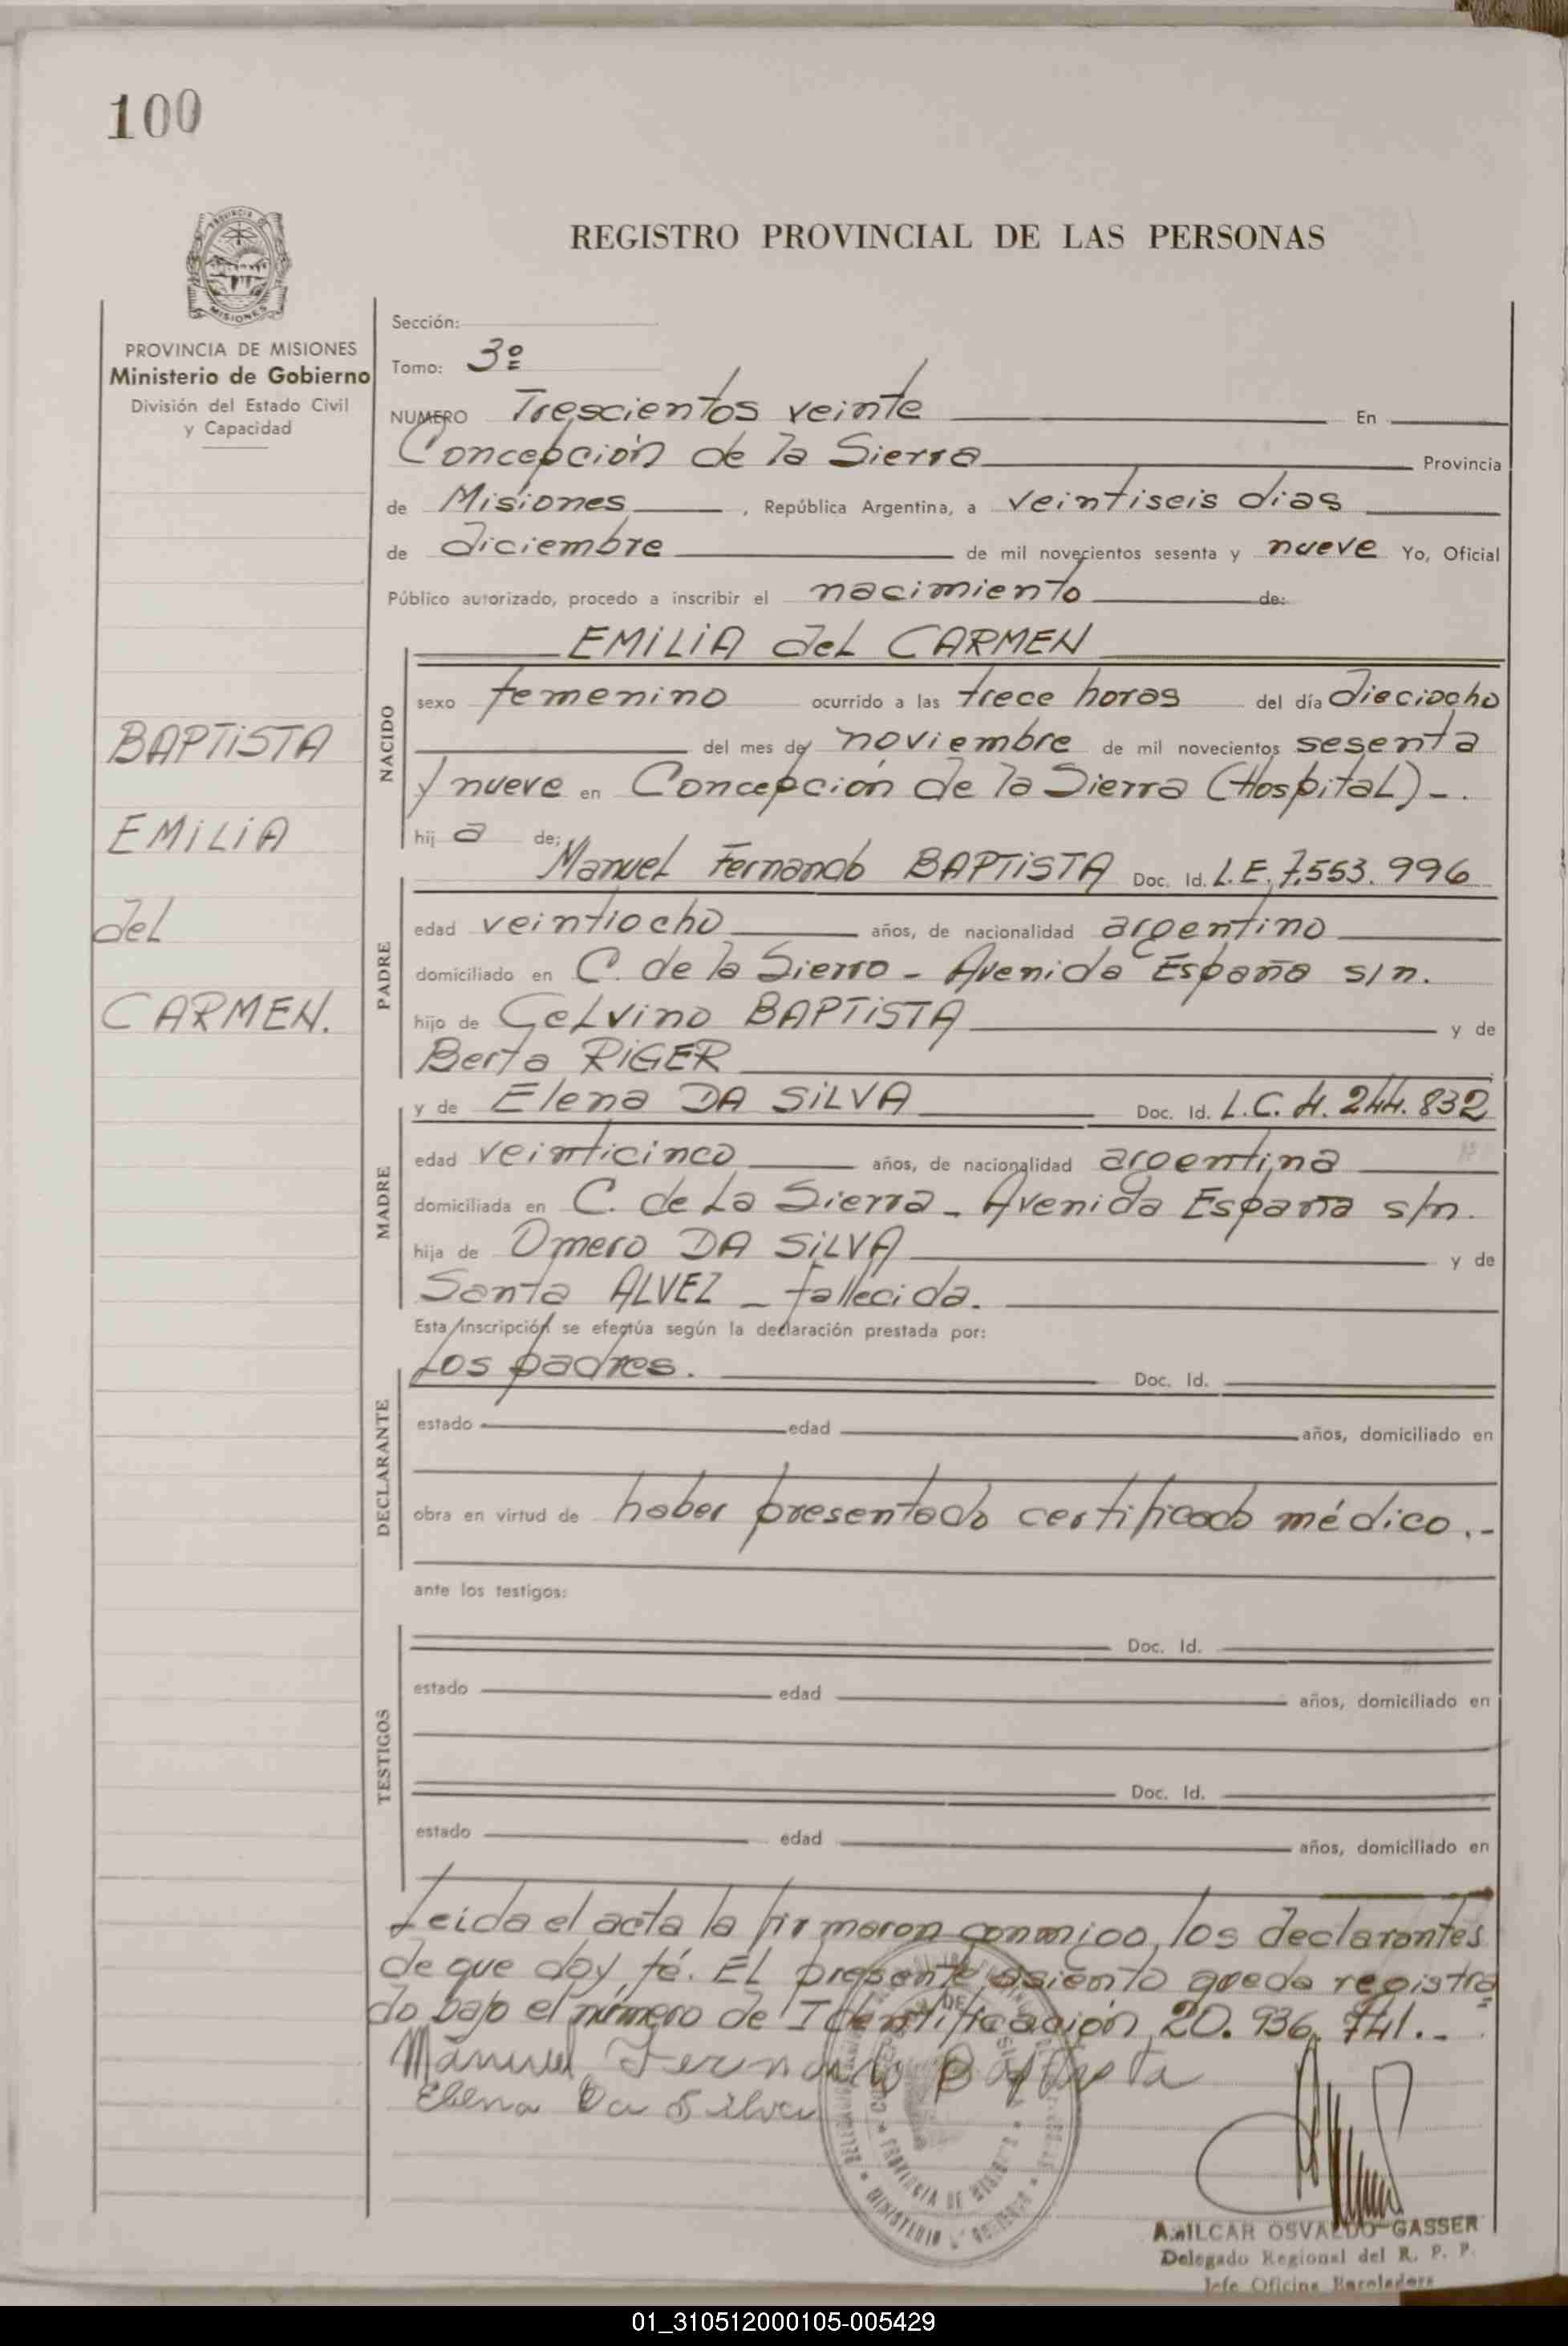 100
REGISTRO PROVINCIAL DE LAS PERSONAS
MISIONES
PROVINCIA DE MISIONES
Ministerio de Gobierno
División del Estado Civil
y Capacidad
BAPTISTA
EMILIA
del
CARMEN.
Sección:
Tomo: 3º
NUMERO Trescientos veinte En
Concepción de la Sierra Provincia
de Misiones, República Argentina, a veintiseis dias
de diciembre de mil novecientos sesenta y nueve Yo, Oficial
Público autorizado, procedo a inscribir el nacimiento de:
EMILIA del CARMEN
NACIDO
sexo femenino ocurrido a las trece horas del día dieciocho
del mes de noviembre de mil novecientos sesenta
y nueve en Concepción de la Sierra (Hospital)-.
hij a de:
Manuel Fernando BAPTISTA Doc. Id. L.E. 7.553.996
PADRE
edad veintiocho años, de nacionalidad argentino
domiciliado en C. de la Sierra - Avenida España s/n.
hijo de Celvino BAPTISTA y de
Berta RIGER
y de Elena DA SILVA Doc. Id. L.C. 4.244.832
MADRE
edad veinticinco años, de nacionalidad argentina
domiciliada en C. de La Sierra - Avenida España s/n.
hija de Omero DA SILVA y de
Santa ALVEZ - fallecida.
Esta inscripción se efectúa según la declaración prestada por:
Los padres. Doc. Id.
DECLARANTE
estado edad años, domiciliado en
obra en virtud de haber presentado certificado médico.-
ante los testigos:
Doc. Id.
TESTIGOS
estado edad años, domiciliado en
Doc. Id.
estado edad años, domiciliado en
Leida el acta la firmaron conmigo, los declarantes
de que doy fé. EL presente asiento queda registra
do bajo el número de Identificación 20.936.741.-
Manuel Fernando Baptista
Elena Da Silva
PROVINCIA DE MISIONES
MINISTERIO
AMILCAR OSVALDO GASSER
Delegado Regional del R. P. P.
Jefe Oficina
01_310512000105-005429